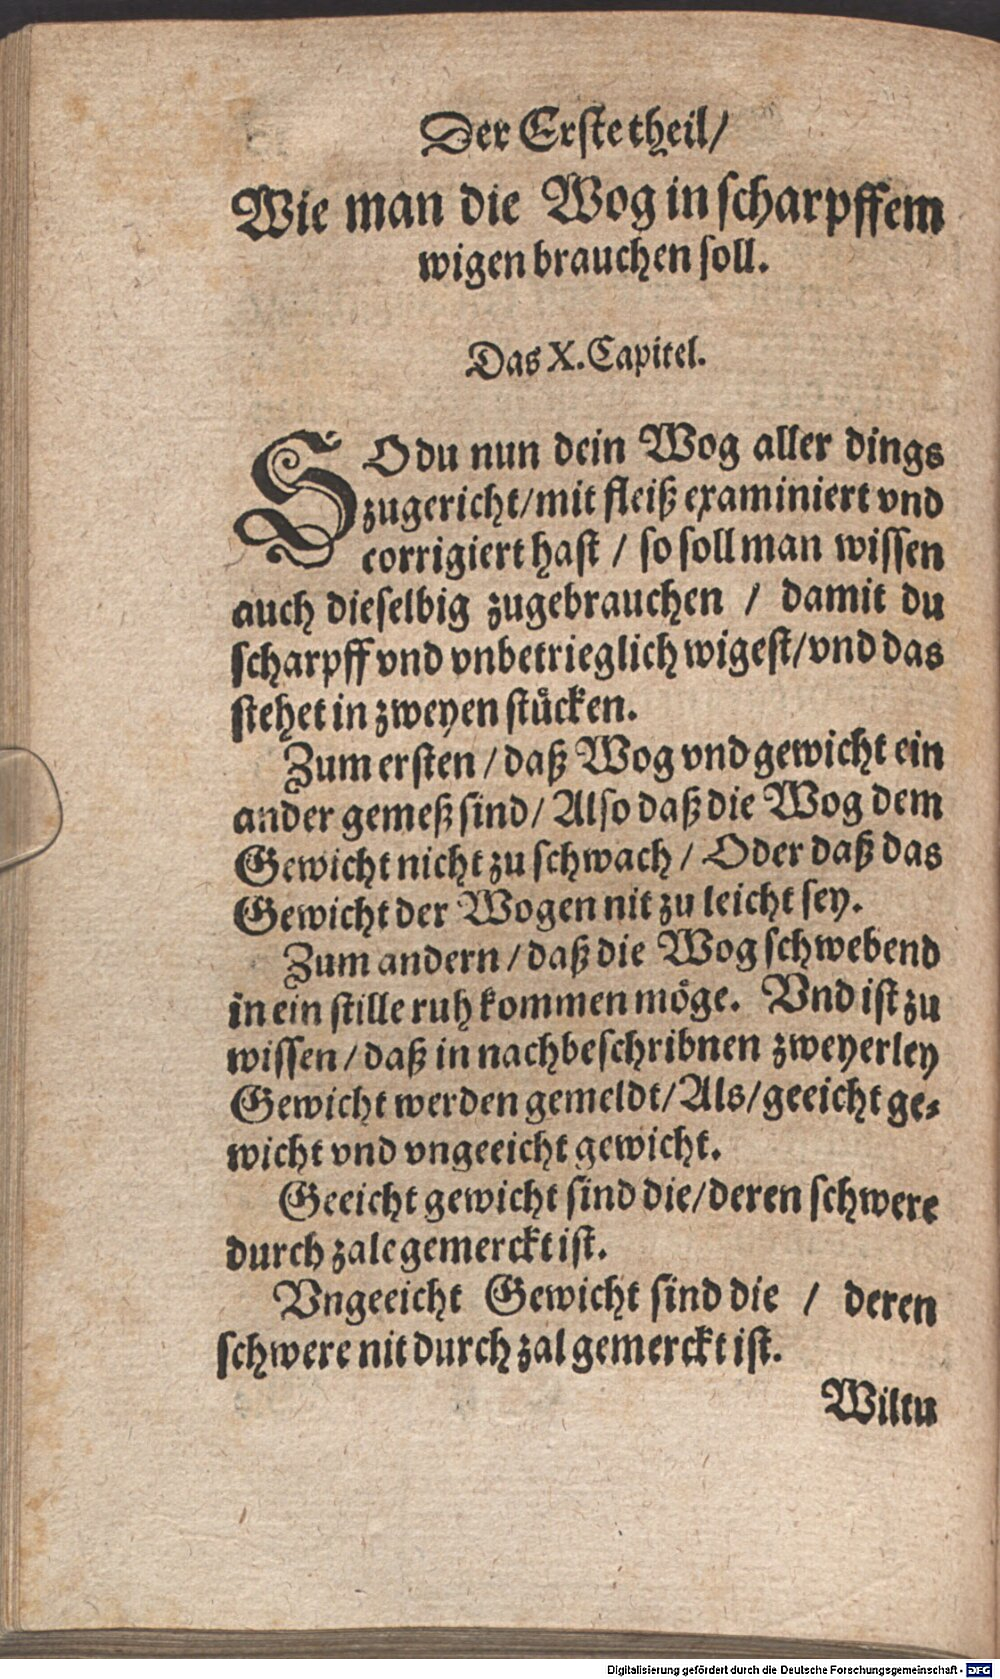 Der Erste theil/
Wie man die Wog in scharpffem
wigen brauchen soll.
Das X. Capitel.
SO du nun dein Wog aller dings
zugericht/mit fleiß examiniert vnd
corrigiert hast / so soll man wissen
auch dieselbig zugebrauchen / damit du
scharpff vnd vnbetrieglich wigest/vnd das
stehet in zweyen stuͤcken.
Zum ersten / daß Wog vnd gewicht ein
ander gemeß sind/ Also daß die Wog dem
Gewicht nicht zu schwach / Oder daß das
Gewicht der Wogen nit zu leicht sey.
Zum andern / daß die Wog schwebend
in ein stille ruh kommen möge. Vnd ist zu
wissen / daß in nachbeschribnen zweyerley
Gewicht werden gemeldt/ Als/ geeicht ge⸗
wicht vnd vngeeicht gewicht.
Geeicht gewicht sind die/deren schwere
durch zale gemerckt ist.
Vngeeicht Gewicht sind die / deren
schwere nit durch zal gemerckt ist.
Wiltu
Digitalisierung gefördert durch die Deutsche Forschungsgemeinschaft - DFG